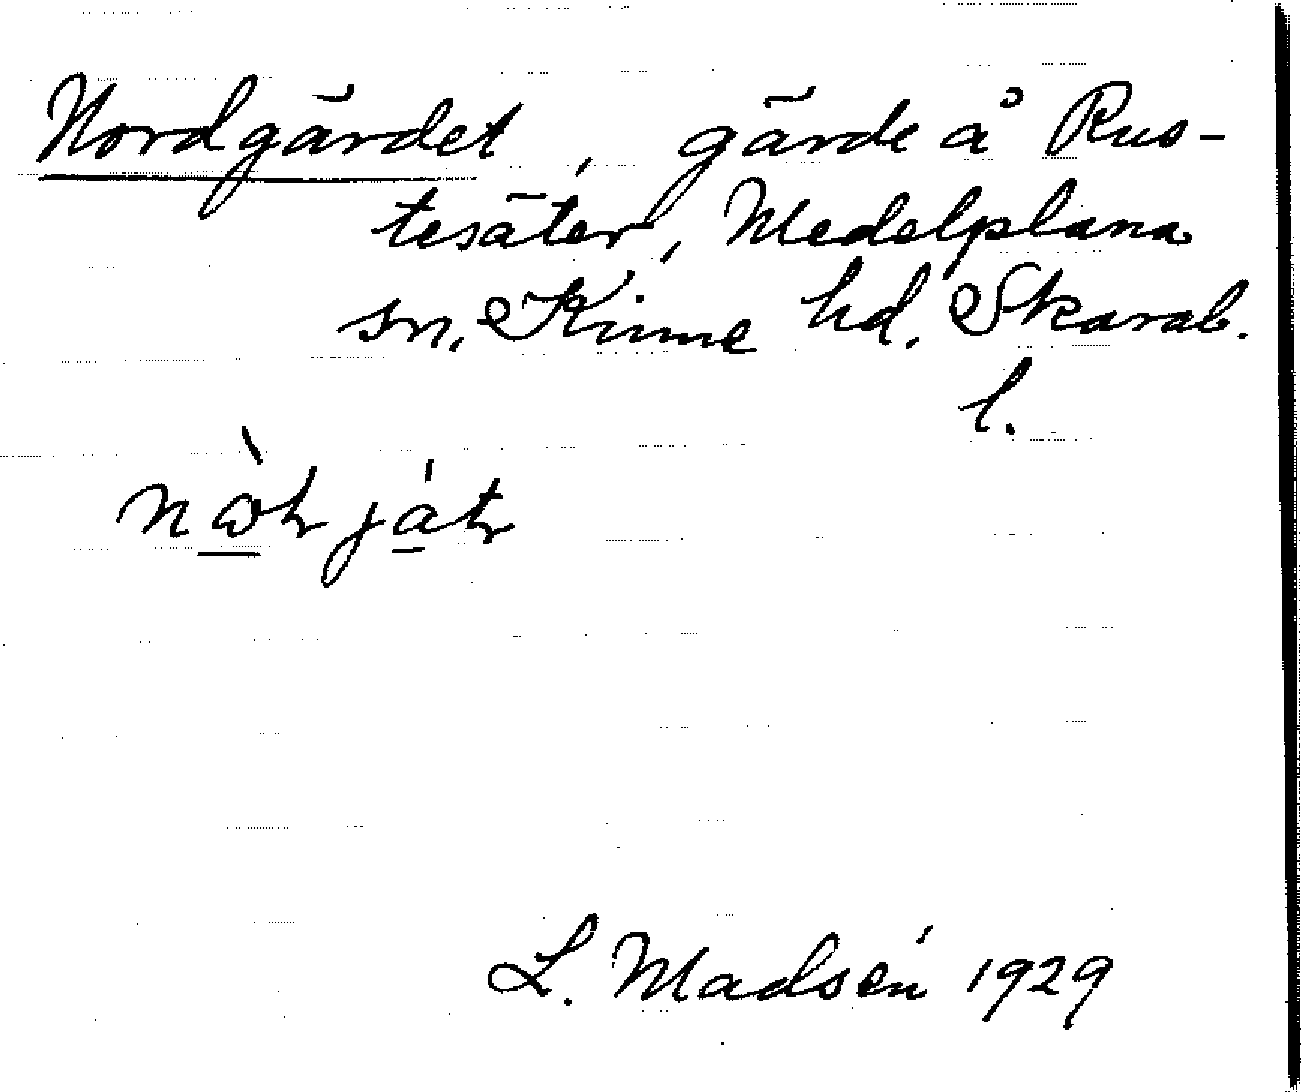 Nordgärdet, gärde å Rus-
tesäter, Medelplana
sn, Kinne hd. Skarab.
l.
L. Madsén 1929